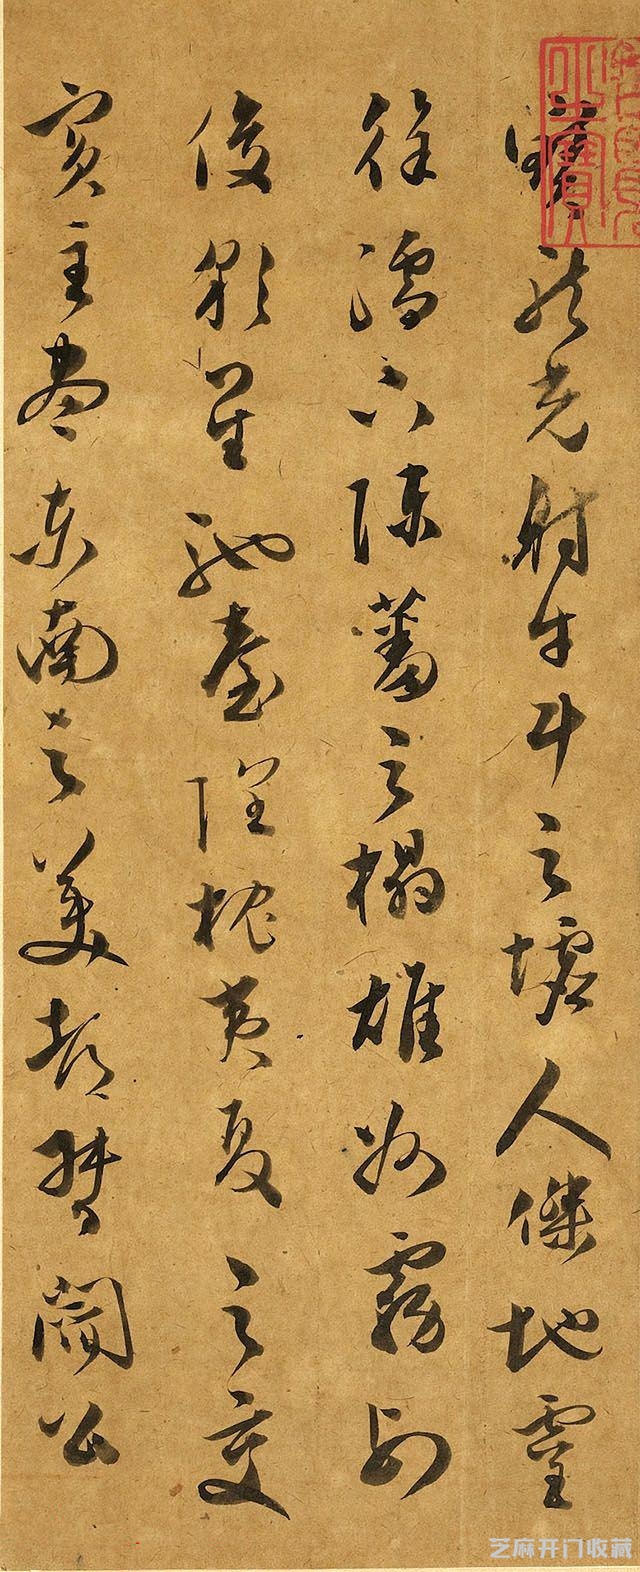 寶龍光射牛斗之墟人傑地靈
徐孺下陳蕃之榻雄州霧列
俊彩星馳臺隍枕夷夏之交
賓主盡東南之美都督閻公
芝麻开门收藏